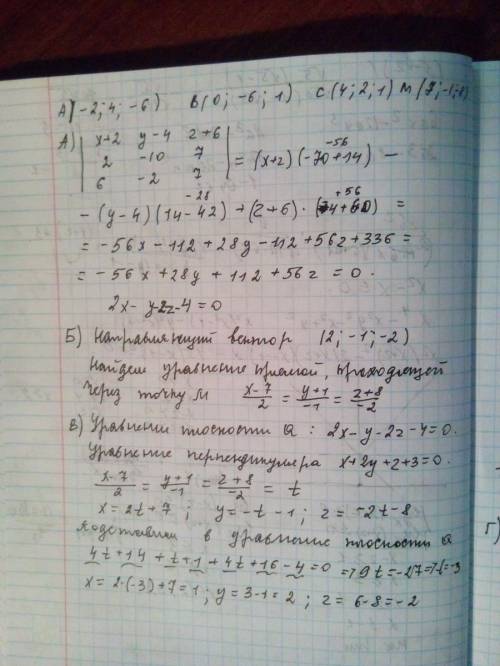 A(-2; 4; -6) B(0; -6; 1) C(4; 2; 1) M(7; -1; -8)
А) | x+2 y-4 z+6 |
| 2 -10 7 | = (x+2)(-70+14) -
-56
| 6 -2 7 |
-28 +56
- (y-4)(14-42) + (z+6)·(-4+60) =
= -56x - 112 + 28y - 112 + 56z + 336 =
= -56x + 28y + 112 + 56z = 0.
2x - y - 2z - 4 = 0
Б) Направляющий вектор (2; -1; -2)
Найдем уравнение прямой, проходящей
через точку M x-7/2 = y+1/-1 = z+8/-2
в) Уравнении плоскости Q: 2x - y - 2z - 4 = 0.
Уравнение перпендикуляра x + 2y + z + 3 = 0.
x-7/2 = y+1/-1 = z+8/-2 = t
x = 2t + 7; y = -t - 1; z = -2t - 8
Подставим в уравнение плоскости Q
4t + 14 + t + 1 + 4t + 16 - 4 = 0 => 9t = -27 => t = -3
x = 2·(-3) + 7 = 1; y = 3 - 1 = 2; z = 6 - 8 = -2
Г)